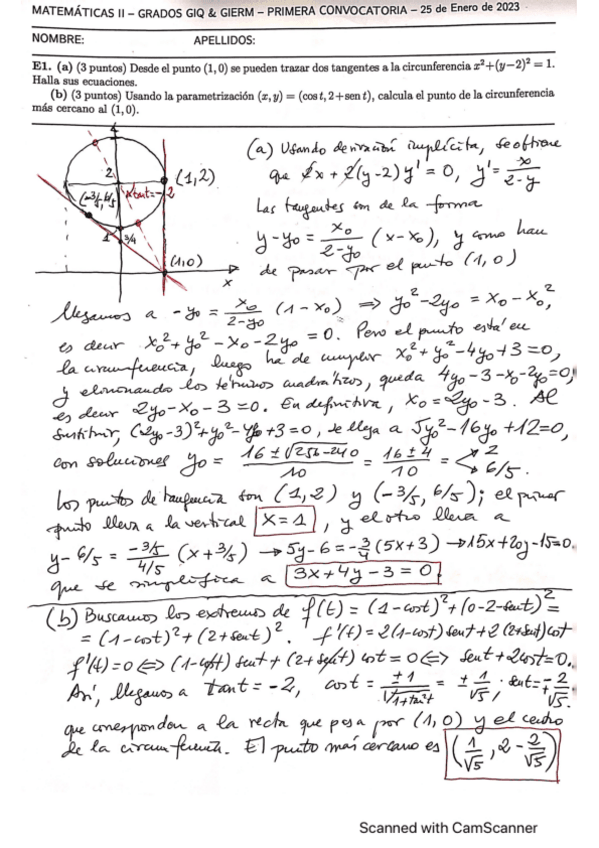 MATEMÁTICAS II – GRADOS GIQ & GIERM – PRIMERA CONVOCATORIA – 25 de Enero de 2023
NOMBRE: APELLIDOS:
E1. (a) (3 puntos) Desde el punto (1, 0) se pueden trazar dos tangentes a la circunferencia x²+(y−2)² = 1.
Halla sus ecuaciones.
(b) (3 puntos) Usando la parametrización (x, y) = (cos t, 2+sen t), calcula el punto de la circunferencia
más cercano al (1, 0).
4
2
(1,2)
(-3/5, 6/5)
tant=-2
1
3/4
(1,0)
x
(a) Usando derivación implícita, se obtiene
que 2x + 2(y-2) y' = 0, y' = x/(2-y)
Las tangentes son de la forma
y-y₀ = x₀/(2-y₀) (x-x₀), y como han
de pasar por el punto (1,0)
llegamos a -y₀ = x₀/(2-y₀) (1-x₀) ⇒ y₀²-2y₀ = x₀-x₀²,
es decir x₀²+y₀²-x₀-2y₀ = 0. Pero el punto está en
la circunferencia, luego ha de cumplir x₀²+y₀²-4y₀+3=0,
y eliminando los términos cuadráticos, queda 4y₀-3-x₀-2y₀=0,
es decir 2y₀-x₀-3=0. En definitiva, x₀=2y₀-3. Al
sustituir, (2y₀-3)²+y₀²-4y₀+3=0, se llega a 5y₀²-16y₀+12=0,
con soluciones y₀ = (16±√(256-240))/10 = (16±4)/10 = < 2 6/5.
Los puntos de tangencia son (1,2) y (-3/5, 6/5); el primer
punto lleva a la vertical x=1, y el otro lleva a
y-6/5 = (-3/5)/(4/5) (x+3/5) → 5y-6=-3/4(5x+3) → 15x+20y-15=0.
que se simplifica a 3x+4y-3=0.
(b) Buscamos los extremos de f(t) = (1-cost)²+(0-2-sent)² =
= (1-cost)²+(2+sent)². f'(t)=2(1-cost)sent+2(2+sent)cost
f'(t)=0 ⇔ (1-cost)sent+(2+sent)cost=0 ⇔ sent+2cost=0.
Así, llegamos a tant=-2, cost = ±1/√(1+tan²t) = ±1/√5, sent=∓2/√5.
que corresponden a la recta que pasa por (1,0) y el centro
de la circunferencia. El punto más cercano es (1/√5, 2-2/√5)
Scanned with CamScanner